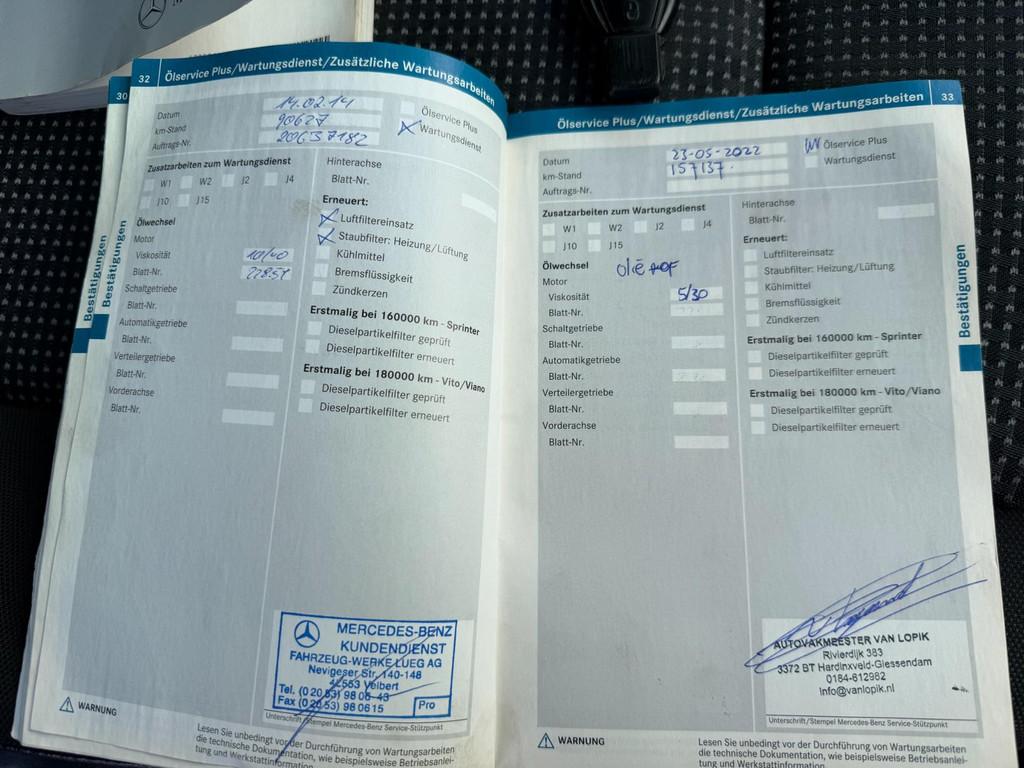 30
32 Ölservice Plus/Wartungsdienst/Zusätzliche Wartungsarbeiten
Datum 14.02.14
km-Stand 90627
Auftrags-Nr. 20637182
Ölservice Plus
Wartungsdienst
Zusatzarbeiten zum Wartungsdienst
W1 W2 J2 J4
J10 J15
Ölwechsel
Motor
Viskosität 10/40
Blatt-Nr. 228.51
Schaltgetriebe
Blatt-Nr.
Automatikgetriebe
Blatt-Nr.
Verteilergetriebe
Blatt-Nr.
Vorderachse
Blatt-Nr.
Hinterachse
Blatt-Nr.
Erneuert:
Luftfiltereinsatz
Staubfilter: Heizung/Lüftung
Kühlmittel
Bremsflüssigkeit
Zündkerzen
Erstmalig bei 160000 km - Sprinter
Dieselpartikelfilter geprüft
Dieselpartikelfilter erneuert
Erstmalig bei 180000 km - Vito/Viano
Dieselpartikelfilter geprüft
Dieselpartikelfilter erneuert
Bestätigungen
Bestätigungen
MERCEDES-BENZ
KUNDENDIENST
FAHRZEUG-WERKE LUEG AG
Nevigeser Str. 140-148
42553 Velbert
Tel. (0 20 53) 98 06-43
Fax (0 20 53) 98 06 15 Pro
Unterschrift/Stempel Mercedes-Benz Service-Stützpunkt
WARNUNG
Lesen Sie unbedingt vor der Durchführung von Wartungsarbeiten
die technische Dokumentation, wie beispielsweise Betriebsanlei-
tung und Werkstattinformation
Ölservice Plus/Wartungsdienst/Zusätzliche Wartungsarbeiten 33
Datum 23-05-2022
km-Stand 157137.
Auftrags-Nr.
Ölservice Plus
Wartungsdienst
Zusatzarbeiten zum Wartungsdienst
W1 W2 J2 J4
J10 J15
Ölwechsel
Motor
Viskosität 5/30
Blatt-Nr.
Schaltgetriebe
Blatt-Nr.
Automatikgetriebe
Blatt-Nr.
Verteilergetriebe
Blatt-Nr.
Vorderachse
Blatt-Nr.
Hinterachse
Blatt-Nr.
Erneuert:
Luftfiltereinsatz
Staubfilter: Heizung/Lüftung
Kühlmittel
Bremsflüssigkeit
Zündkerzen
Erstmalig bei 160000 km - Sprinter
Dieselpartikelfilter geprüft
Dieselpartikelfilter erneuert
Erstmalig bei 180000 km - Vito/Viano
Dieselpartikelfilter geprüft
Dieselpartikelfilter erneuert
Bestätigungen
AUTOVAKMEESTER VAN LOPIK
Rivierdijk 383
3372 BT Hardinxveld-Giessendam
0184-612982
Info@vanlopik.nl
Unterschrift/Stempel Mercedes-Benz Service-Stützpunkt
WARNUNG
Lesen Sie unbedingt vor der Durchführung von Wartungsarbeiten
die technische Dokumentation, wie beispielsweise Betriebsanlei-
tung und Werkstattinformation